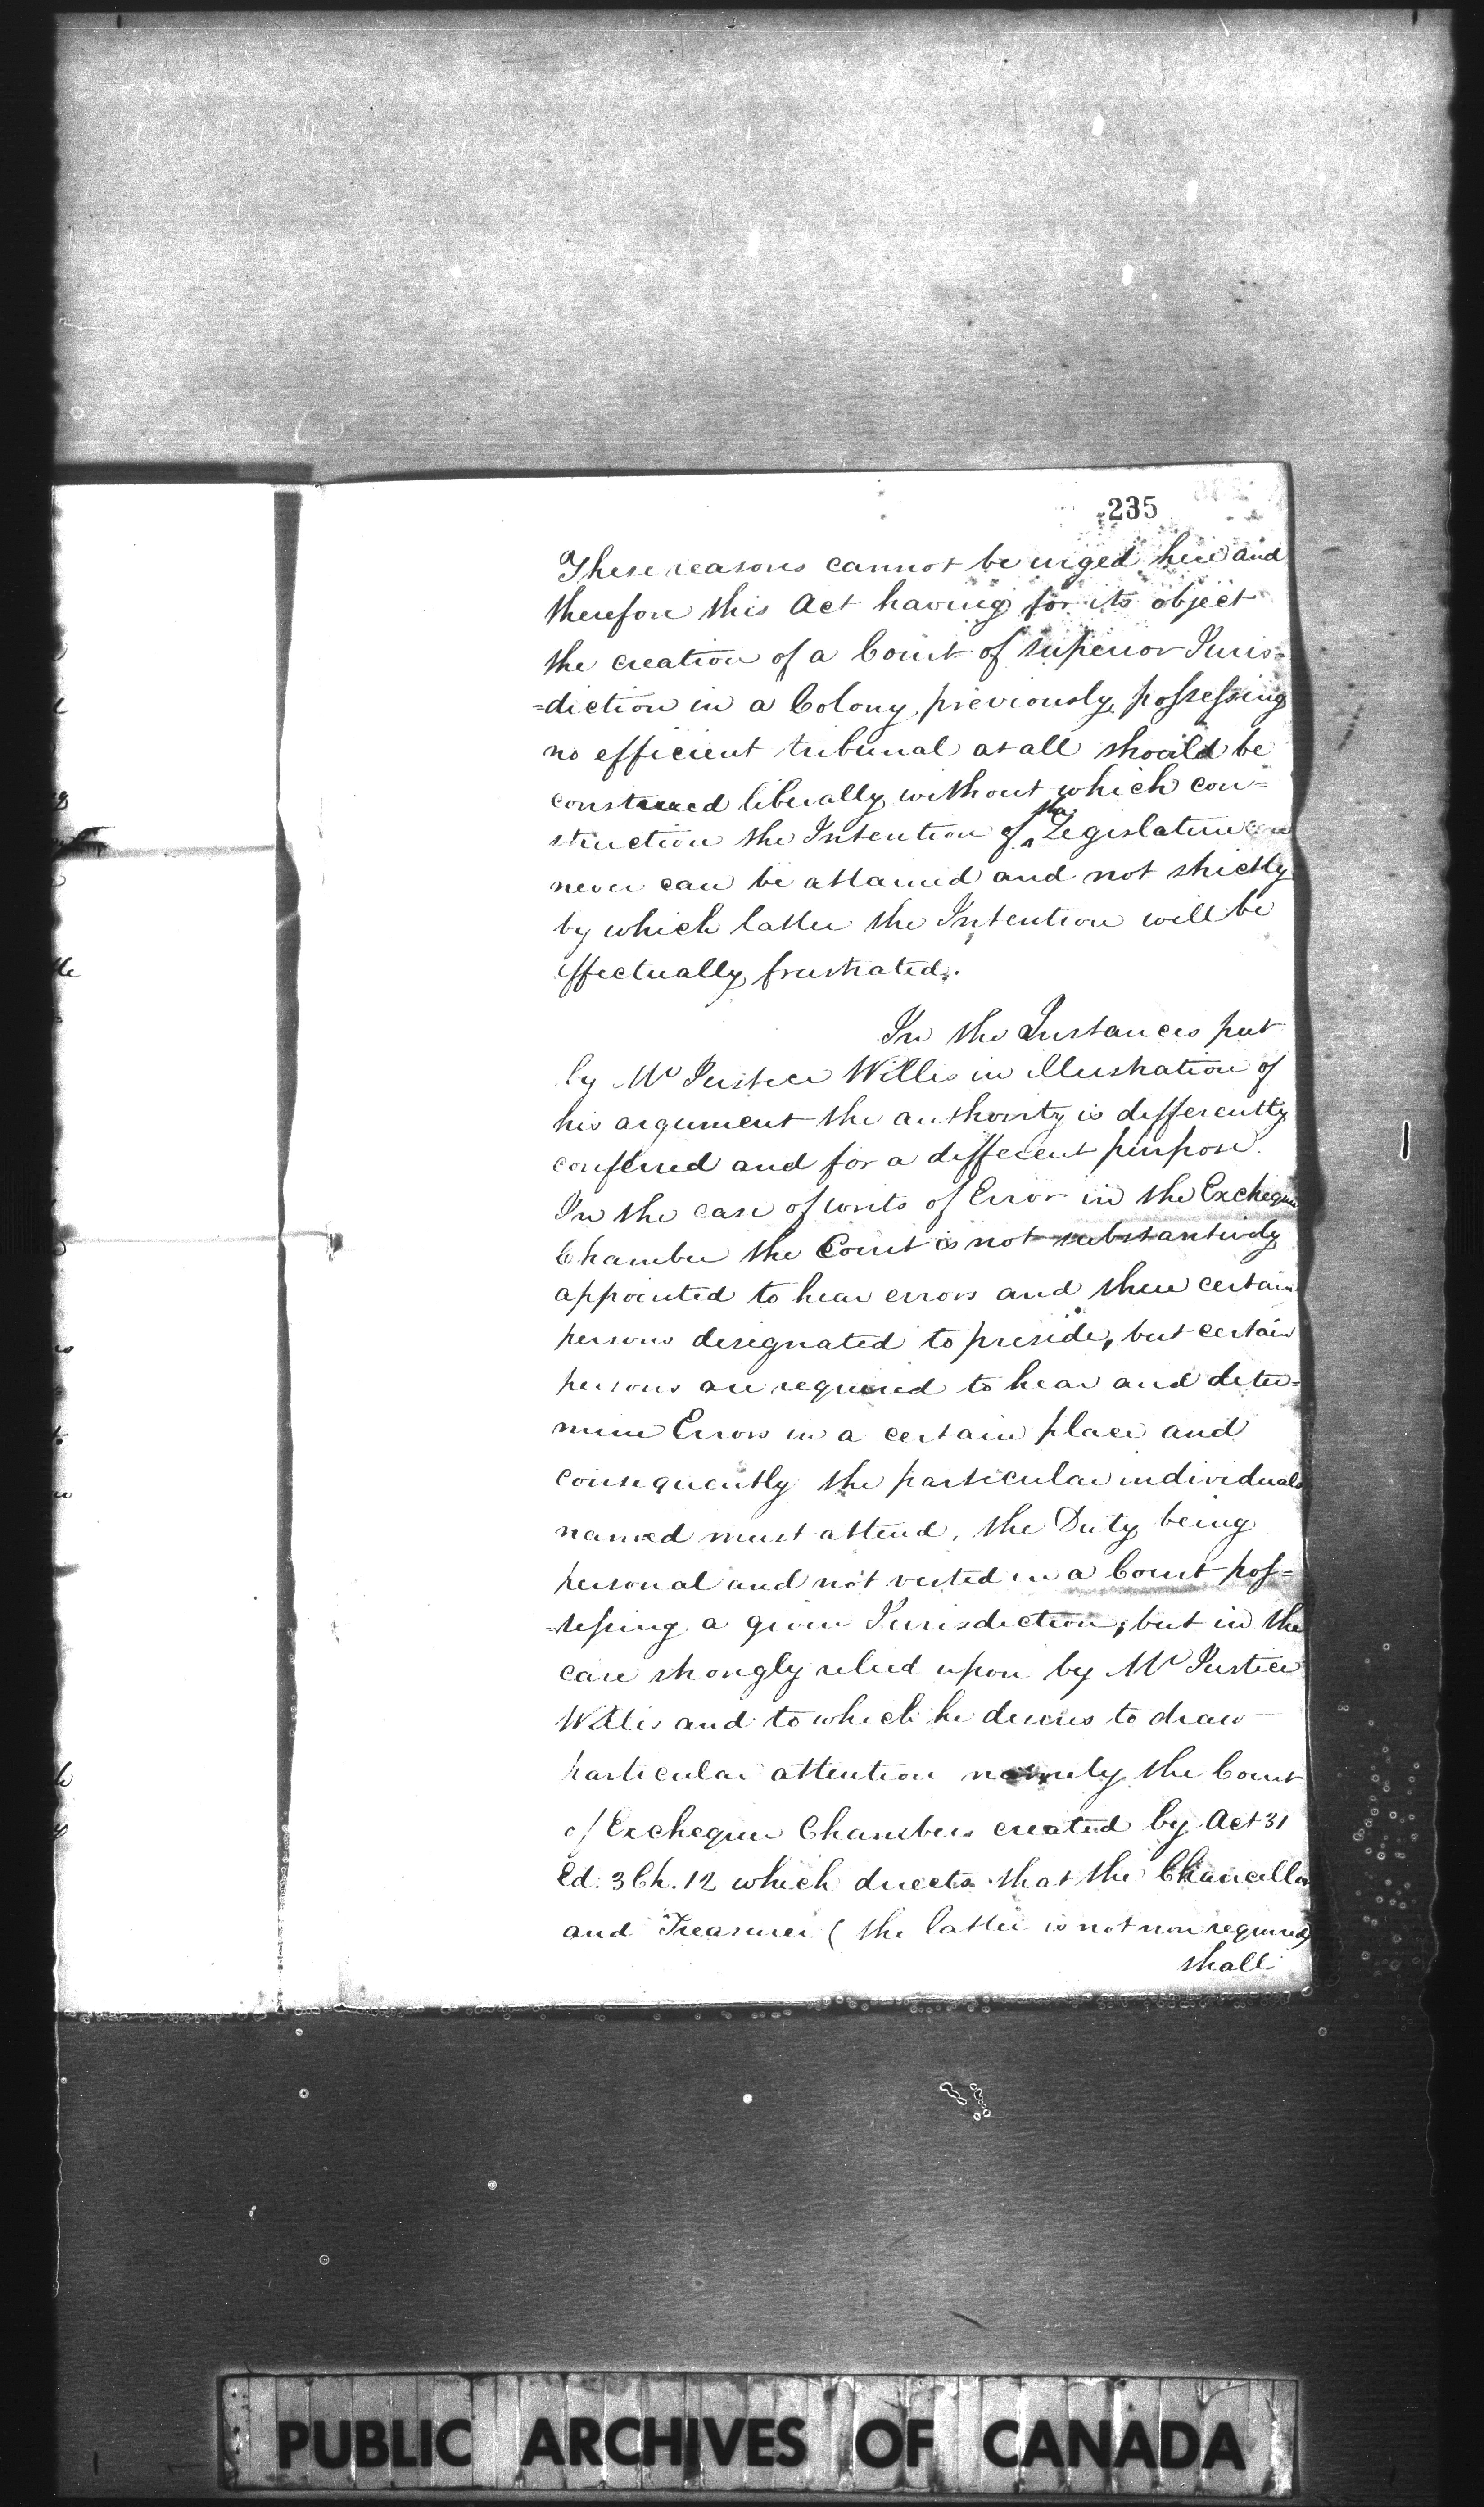 235
These reasons cannot be urged here and
therefore this Act having for its object
the creation of a Court of Superior Juris=
=diction in a Colony previously possessing
no efficient tribunal at all should be
construed liberally without which con=
struction the Intention of the Legislature
never can be attained and not strictly
by which latter the Intention will be
effectually frustrated.
In the Instances put
by Mr Justice Willis in illustration of
his argument the authority is differently
conferred and for a different purpose.
In the case of writs of Error in the Exchequer
Chamber the Court is not substantively
appointed to hear errors and then certain
persons designated to preside, but certain
persons are required to hear and deter=
mine Errors in a certain place and
consequently the particular individuals
named must attend, the Duty being
personal and not vested in a Court pos=
=sessing a given Jurisdiction; but in the
case strongly relied upon by Mr Justice
Willis and to which he desires to draw
particular attention namely the Court
of Exchequer Chambers created by Act 31
Ed. 3 Ch. 12 which directs that the Chancellor
and Treasurer (the latter is not now required)
shall
PUBLIC ARCHIVES OF CANADA